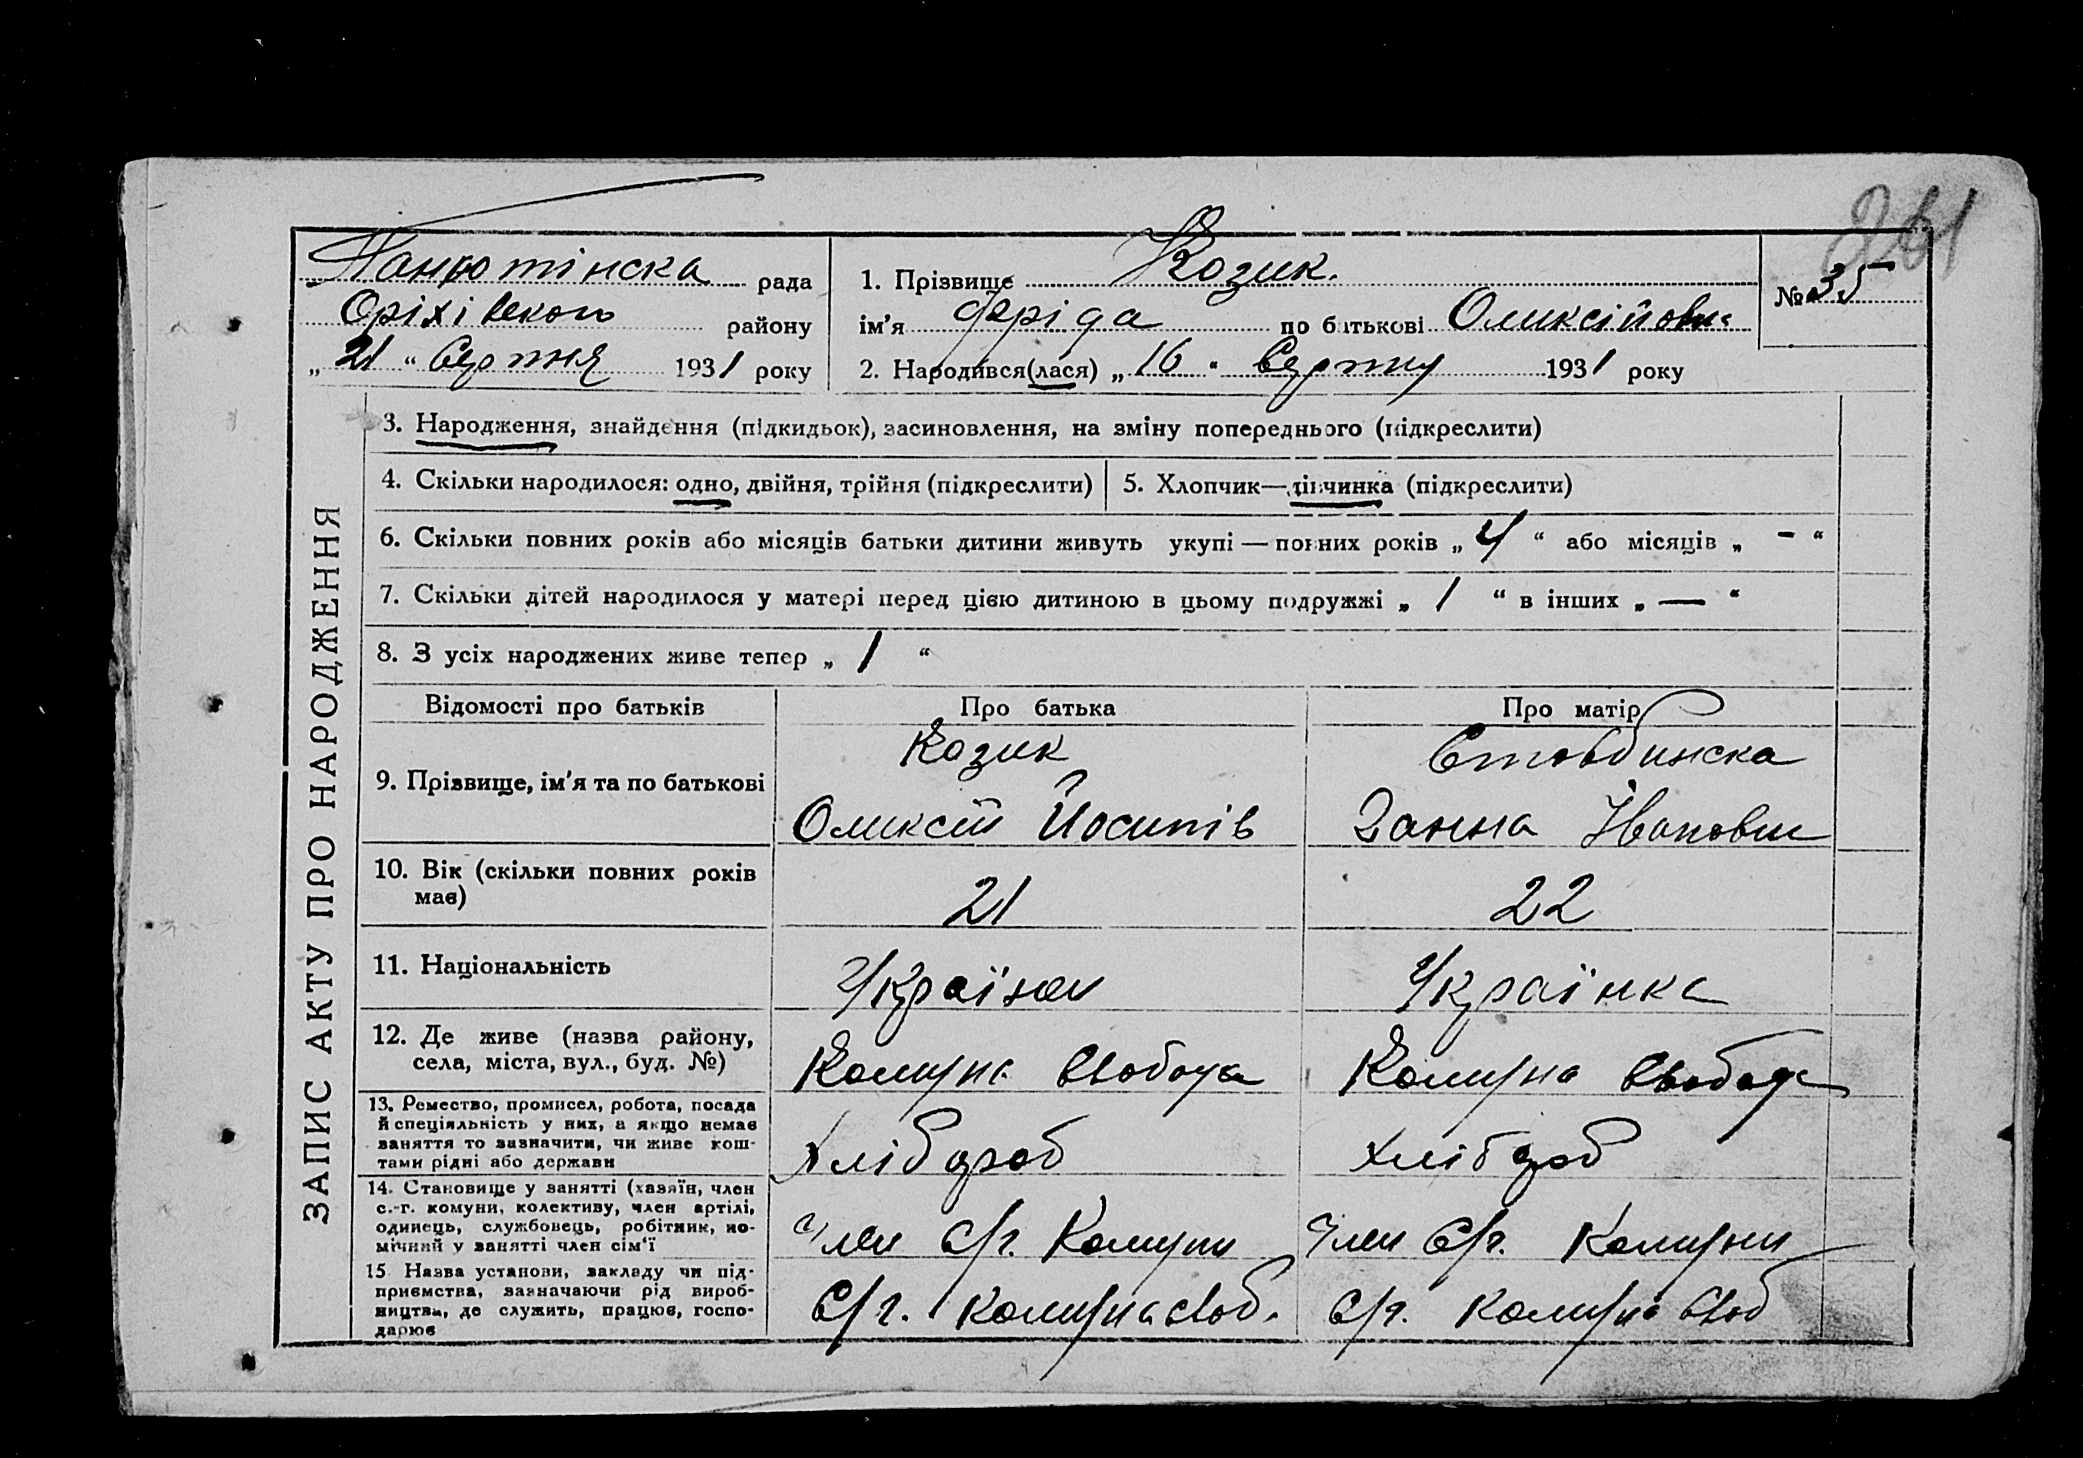 261
Панютінска рада
Оріхівского району
„ 21 “ Серпня 1931 року
1. Прізвище Козик.
ім’я Фріда по батькові Олексійовна
2. Народився(лася) „ 16 “ Серпня 1931 року
№ 35
ЗАПИС АКТУ ПРО НАРОДЖЕННЯ
3. Народження, знайдення (підкидьок), засиновлення, на зміну попереднього (підкреслити)
4. Скільки народилося: одно, двійня, трійня (підкреслити)
5. Хлопчик—дівчинка (підкреслити)
6. Скільки повних років або місяців батьки дитини живуть укупі — повних років „ 4 “ або місяців „ - “
7. Скільки дітей народилося у матері перед цією дитиною в цьому подружжі „ 1 “ в інших „ — “
8. З усіх народжених живе тепер „ 1 “
Відомості про батьків Про батька Про матір
9. Прізвище, ім’я та по батькові
Козик
Олексій Йосипів
Стовбинска
Ганна Івановна
10. Вік (скільки повних років
має)
21 22
11. Національність
Українец Українка
12. Де живе (назва району,
села, міста, вул., буд. №)
Комуна Свобода Комуна Свобода
13. Ремество, промисел, робота, посада
й спеціяльність у них, а якщо немає
заняття то зазначити, чи живе кош-
тами рідні або держави
Хлібороб хлібороб
14. Становище у занятті (хазяїн, член
с.-г. комуни, колективу, член артілі,
одинець, службовець, робітник, по-
мічний у занятті член сім’ї
Член С/г. Комуни Член С/г. Комуни
15 Назва установи, закладу чи під-
приємства, зазначаючи рід вироб-
ництва, де служить, працює, госпо-
дарює
С/г. Комуна своб. С/г. Комуна Своб